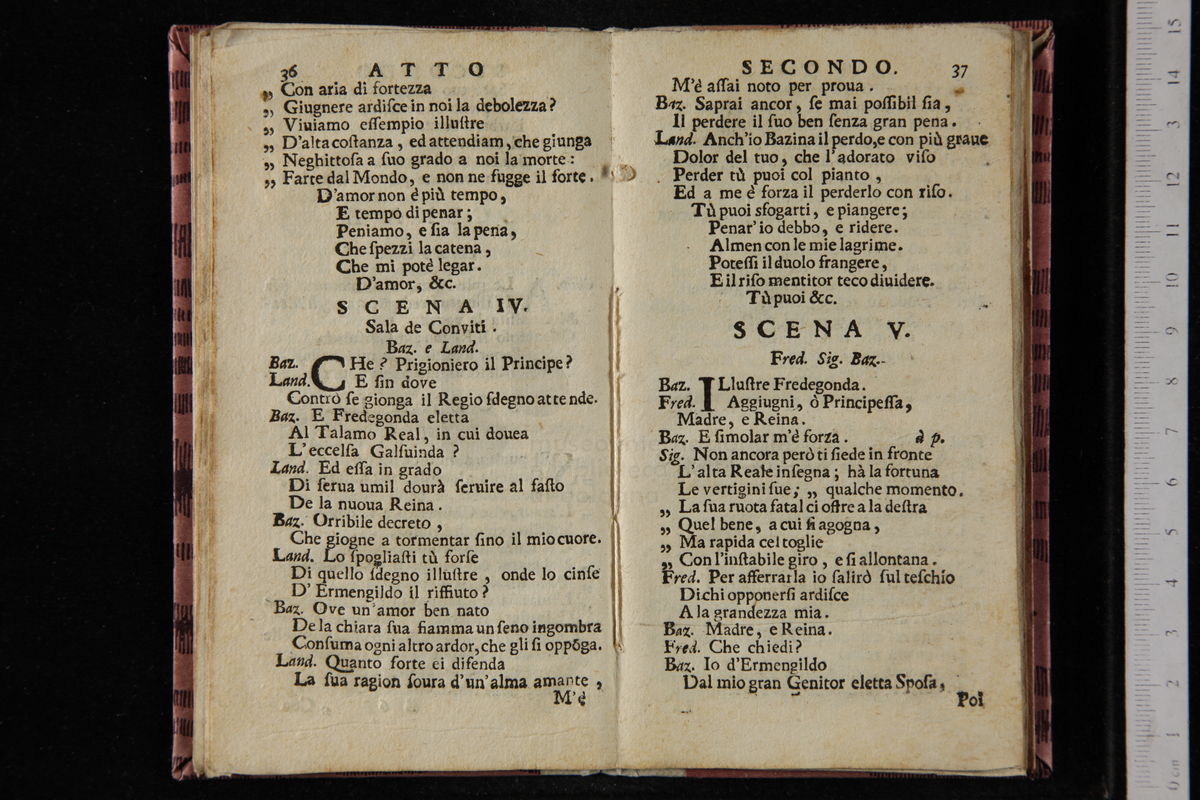 36 ATTO
„ Con aria di fortezza
„ Giugnere ardiſce in noi la debolezza?
„ Viuiamo eſſempio illuſtre
„ D'alta coſtanza, ed attendiam, che giunga
„ Neghittoſa a ſuo grado a noi la morte:
„ Farte dal Mondo, e non ne fugge il forte.
D'amor non è più tempo,
E tempo di penar;
Peniamo, e ſia la pena,
Che ſpezzi la catena,
Che mi potè legar.
D'amor, &c.
SCENA IV.
Sala de Conviti.
Baz. e Land.
Baz. CHe? Prigioniero il Principe?
Land. E ſin dove
Contrò ſe gionga il Regio ſdegno attende.
Baz. E Fredegonda eletta
Al Talamo Real, in cui douea
L'eccelſa Galſuinda?
Land. Ed eſſa in grado
Di ſerua umil dourà ſeruire al faſto
De la nuoua Reina.
Baz. Orribile decreto,
Che giogne a tormentar ſino il mio cuore.
Land. Lo ſpogliaſti tù forſe
Di quello ſdegno illuſtre, onde lo cinſe
D'Ermengildo il riffiuto?
Baz. Ove un'amor ben nato
De la chiara ſua fiamma un ſeno ingombra
Conſuma ogni altro ardor, che gli ſi oppōga.
Land. Quanto forte ei difenda
La ſua ragion ſoura d'un'alma amante,
M'è
SECONDO. 37
M'è aſſai noto per proua.
Baz. Saprai ancor, ſe mai poſſibil ſia,
Il perdere il ſuo ben ſenza gran pena.
Land. Anch'io Bazina il perdo, e con più graue
Dolor del tuo, che l'adorato viſo
Perder tù puoi col pianto,
Ed a me è forza il perderlo con riſo.
Tù puoi sfogarti, e piangere;
Penar'io debbo, e ridere.
Almen con le mie lagrime.
Poteſſi il duolo frangere,
E il riſo mentitor teco diuidere.
Tù puoi &c.
SCENA V.
Fred. Sig. Baz.
Baz. ILluſtre Fredegonda.
Fred. Aggiugni, ò Principeſſa,
Madre, e Reina.
Baz. E ſimolar m'è forza. à p.
Sig. Non ancora però ti ſiede in fronte
L'alta Reale inſegna; hà la fortuna
Le vertigini ſue; „ qualche momento.
„ La ſua ruota fatal ci offre a la deſtra
„ Quel bene, a cui ſi agogna,
„ Ma rapida cel toglie
„ Con l'inſtabile giro, e ſi allontana.
Fred. Per afferrarla io ſalirò ſul teſchio
Di chi opponerſi ardiſce
A la grandezza mia.
Baz. Madre, e Reina.
Fred. Che chiedi?
Baz. Io d'Ermengildo
Dal mio gran Genitor eletta Spoſa,
Poi
15
14
13
12
11
10
9
8
7
6
5
4
3
2
1
0 cm